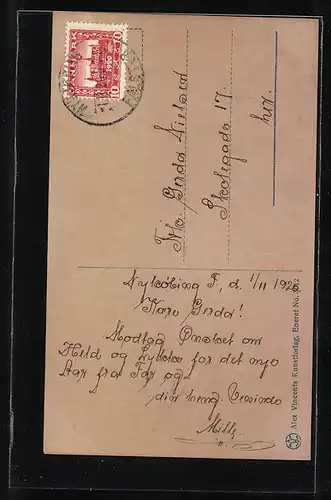 DANMARK
1920
10 10
Frk. Gerda Nielsen
Skolegade 17.
her.
Nyköbing F, d. 1/11 1920
Kære Gerda!
Modtag Ønsket om
Held og Lykke for det nye
Aar fra Far og
din heng. Veninde
Milly
Alex Vincents Kunstforlag, Eneret No.